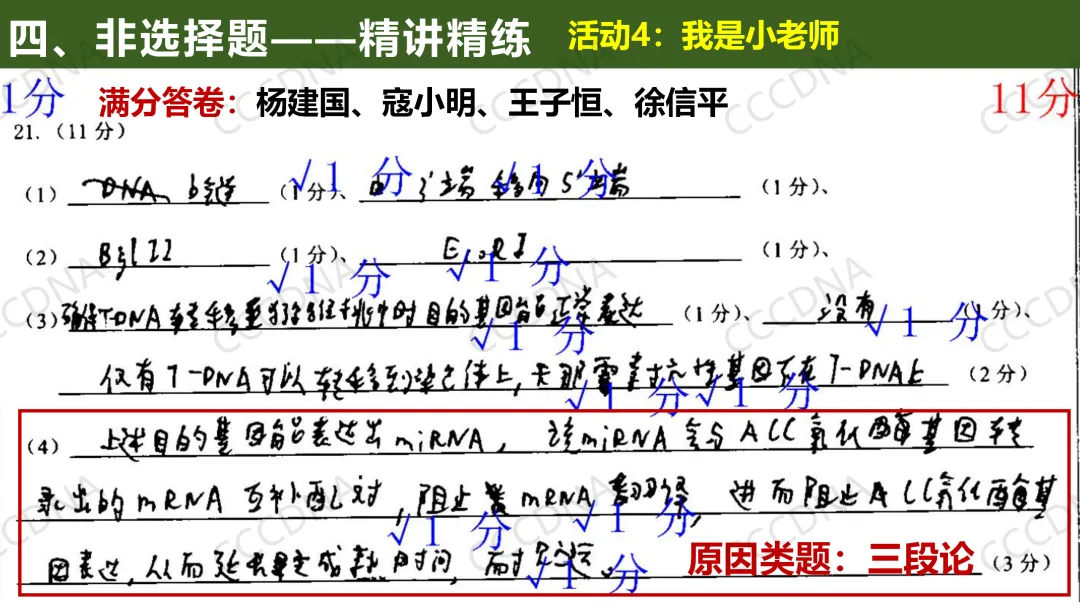 四、非选择题——精讲精练 活动4：我是小老师
1分 满分答卷：杨建国、寇小明、王子恒、徐信平 11分
21.（11 分）
（1） b链 （1 分）、 由 3'端 移向 5'端 （1 分）、
√1 分 √1 分
（2） BglII （1 分）、 EcoRI （1 分）、
√1 分 √1 分
（3） T-DNA转移至 目的基因能正常表达 （1 分）、 没有 （1 分）、
√1 分 √1 分
仅有T-DNA可以转移到染色体上，卡那霉素抗性基因不在T-DNA上 （2 分）
√1 分 √1 分
（4） 上述目的基因能表达出miRNA， 该miRNA会与ACC氧化酶基因转
录出的mRNA互补配对，阻止 mRNA翻译， 进而阻止ACC氧化酶基
√1 分 √1 分
因表达，从而延长果实成熟时间，耐 。 原因类题：三段论 （3 分）
√1 分
CCCDNA